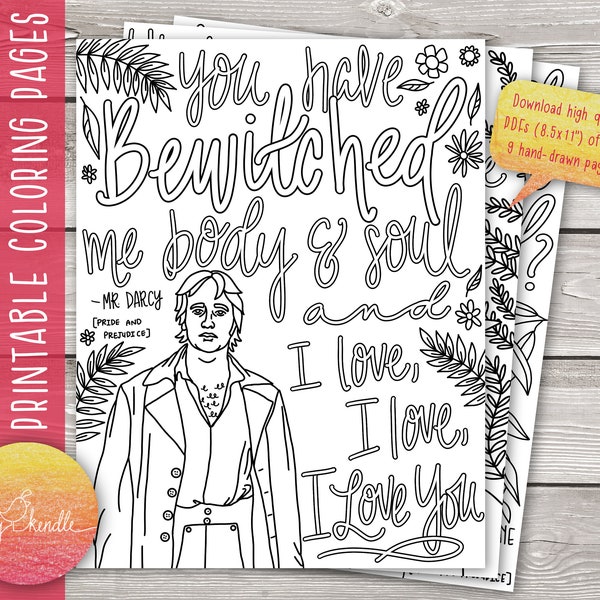 PRINTABLE COLORING PAGES
you have
Bewitched
me body & soul
-MR DARCY
[PRIDE AND
PREJUDICE]
and
I love,
I love,
I Love You
Download high q
PDFs (8.5x11") of
9 hand-drawn pag
Skendle
?